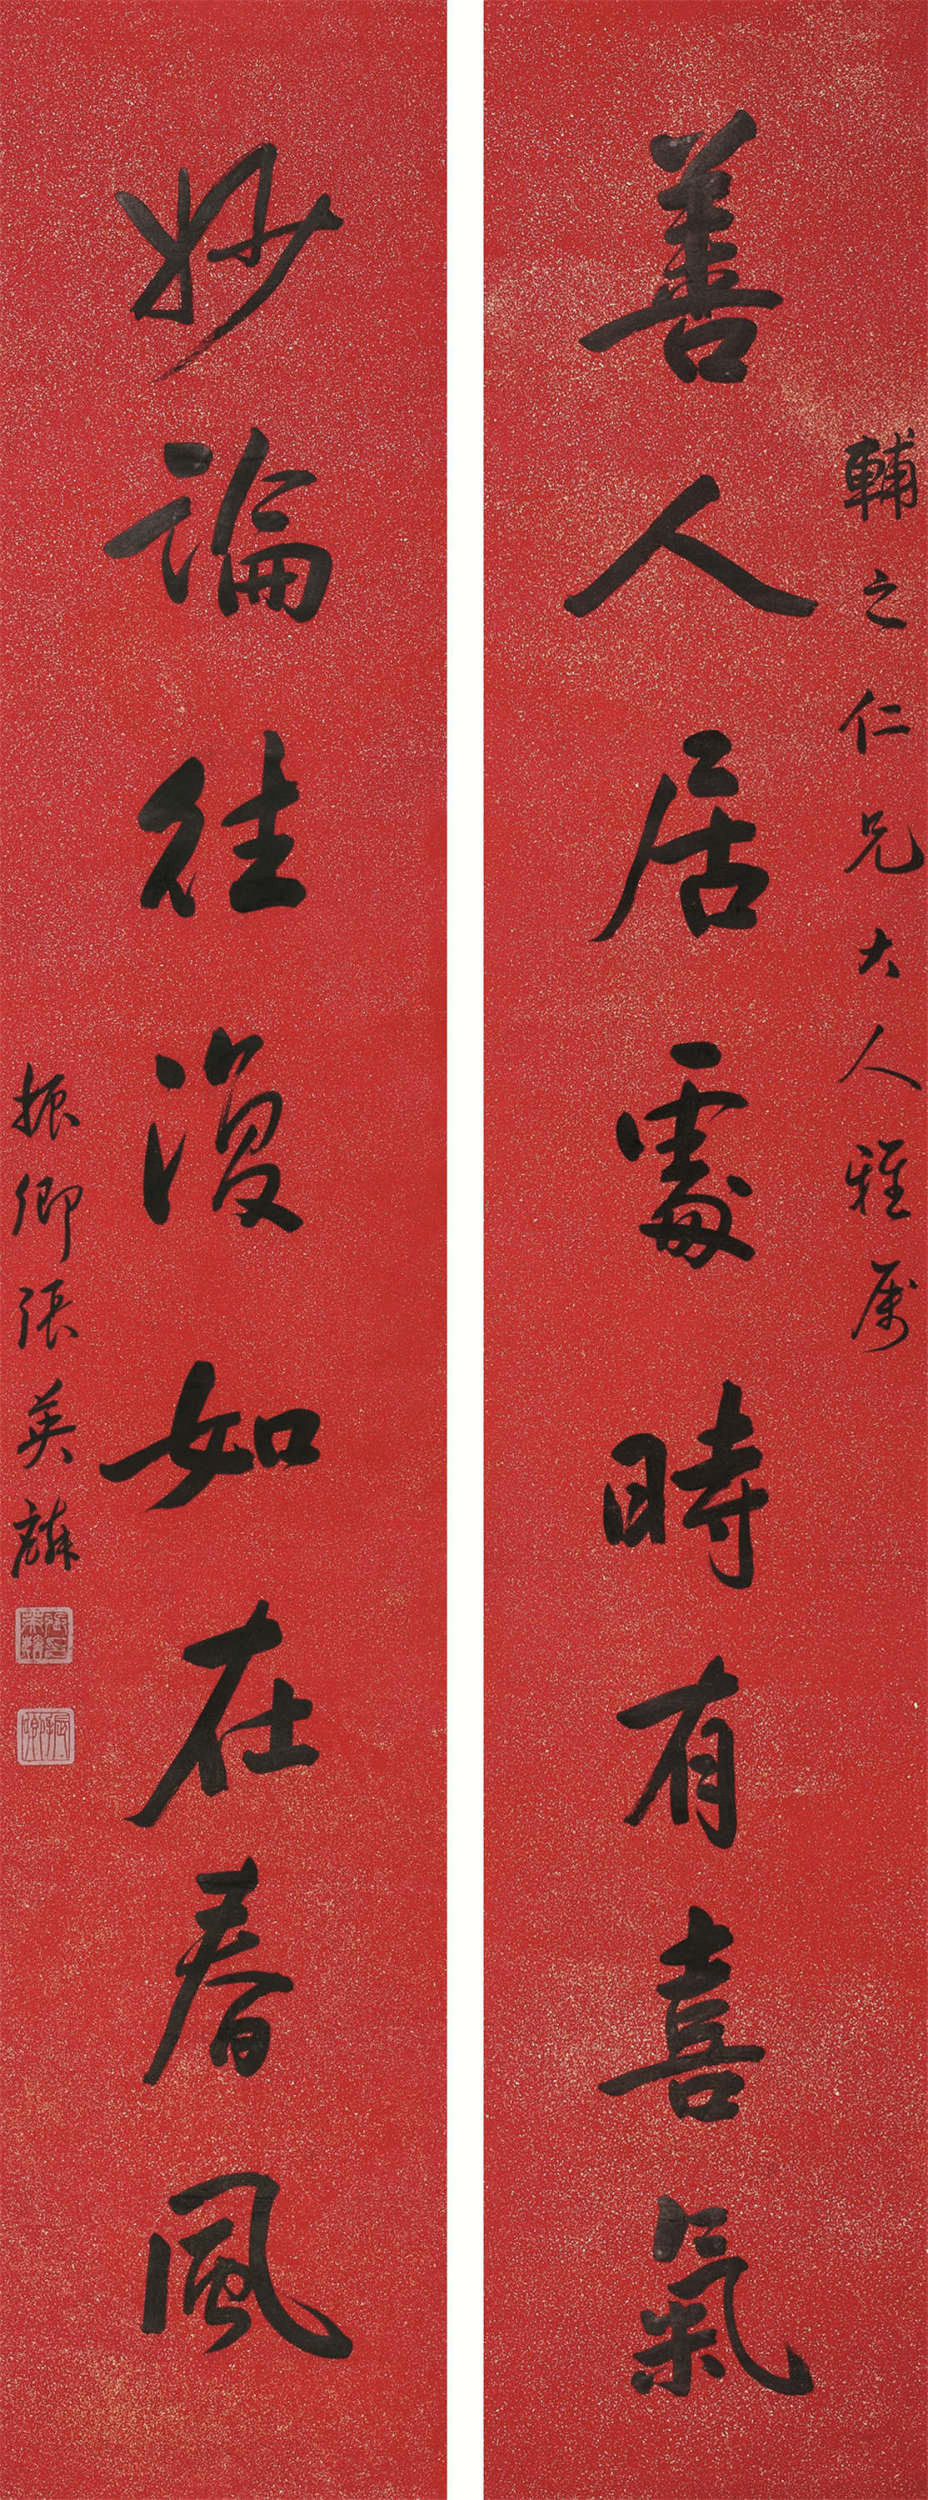 輔之仁兄大人雅属
善人居處時有喜氣
妙論往復如在春風
振卿張英麟